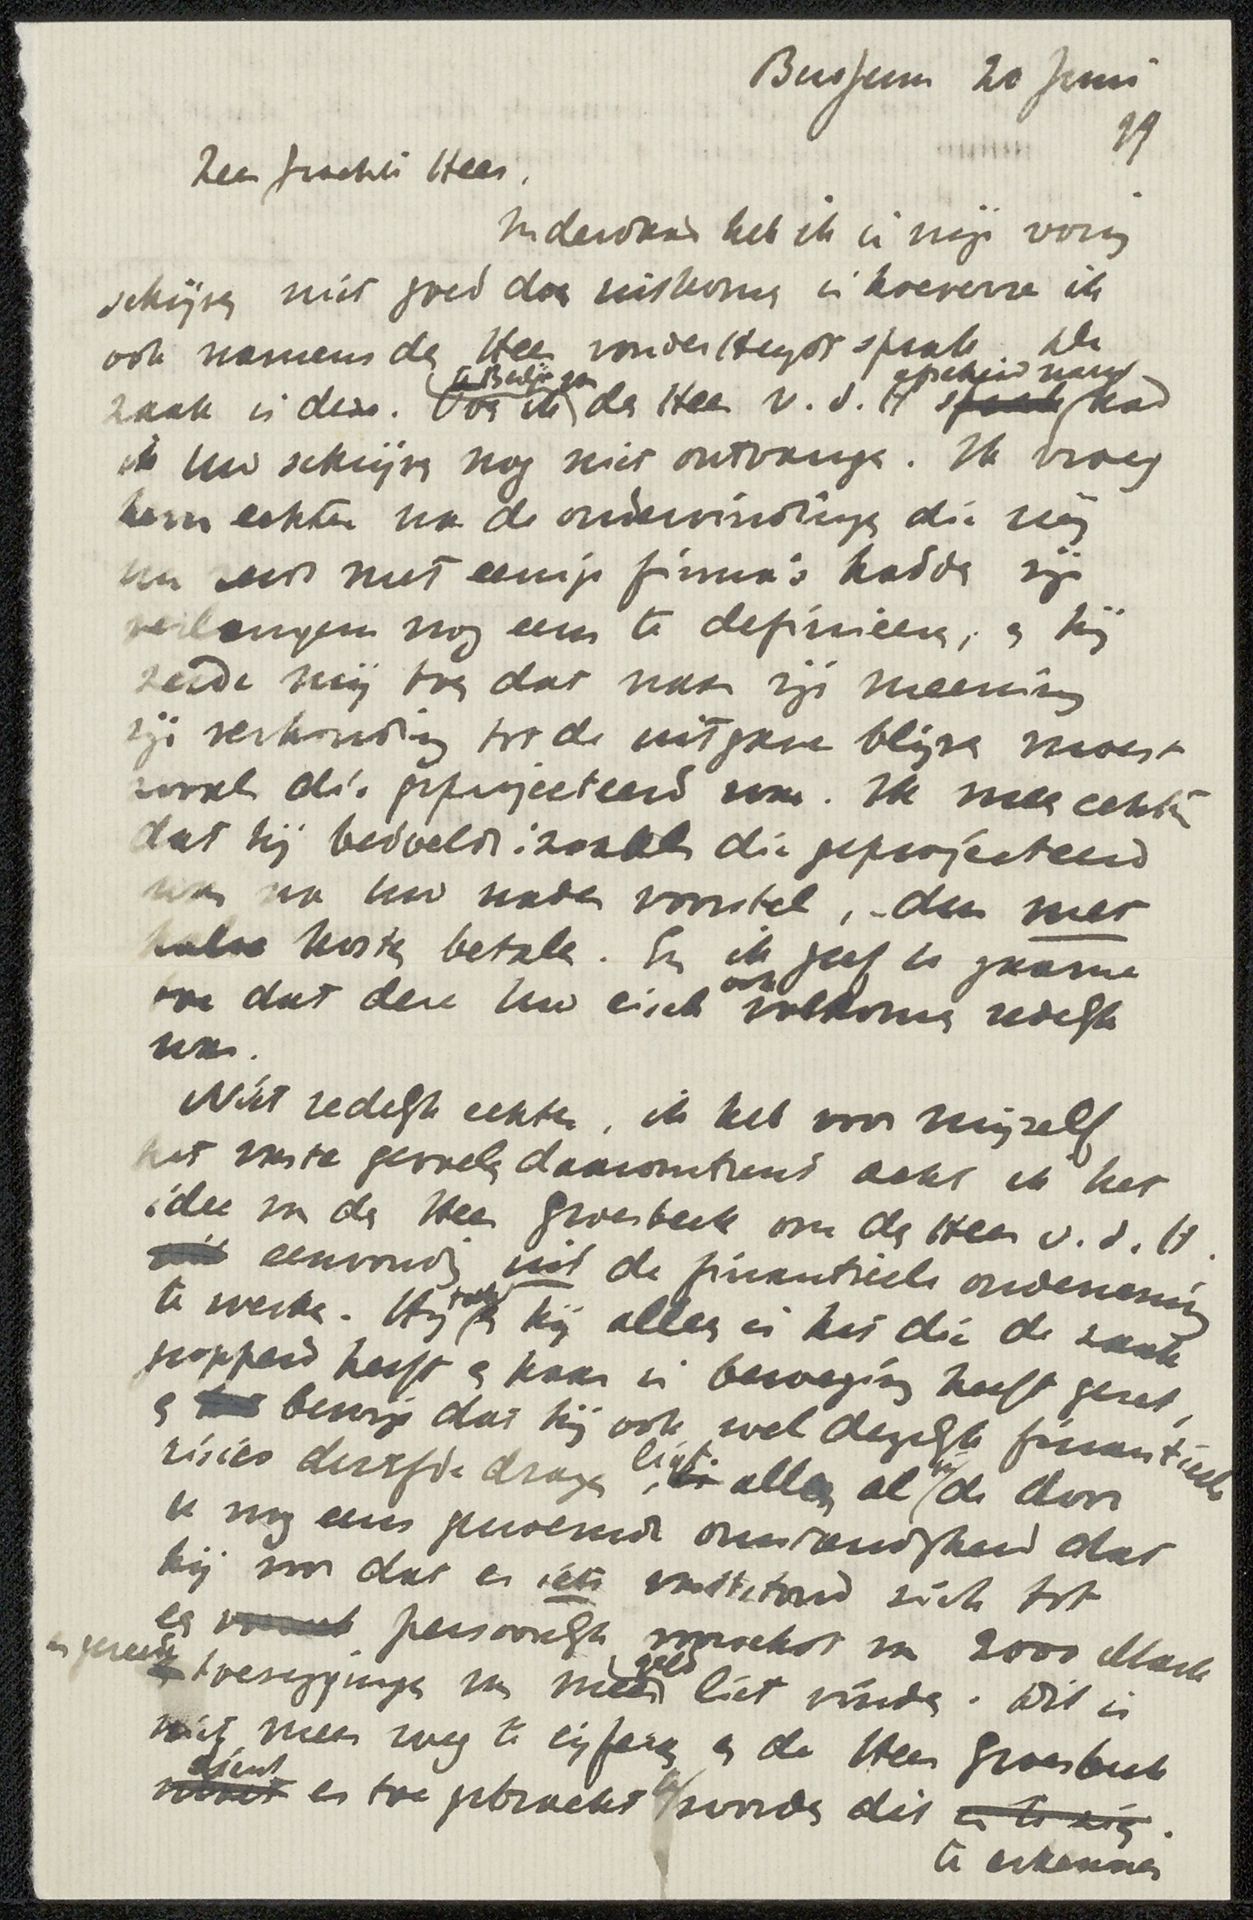 Bussum 20 Juni
99
Zeer geachte Heer,
Inderdaad heb ik in mijn vorig
schrijven niet goed doen uitkomen in hoeverre ik
ook namens den Heer van der Heydt sprak. De
zaak is deze. Toen ik te Berlijn van den Heer v. d. H afscheid nam had
ik Uw schrijven nog niet ontvangen. Ik vroeg
hem echter na de ondervindingen die wij
nu met eenige firma's hadden zijn
verlangens nog eens te definieeren, en hij
zeide mij toen dat naar zijn meening
zijn verhouding tot de uitgave blijven moest
zooals die geprojecteerd was. Ik meen echter
dat hij bedoelde: zooals die geprojecteerd
was na Uw nader voorstel, - dus met
halve kosten betalen. En ik geef U gaarne
toe dat deze Uw eisch ook volkomen redelijk
was.
Niet redelijk echter, ik heb voor mijzelf
het vaste gevoelen daaromtrent acht ik het
idee van den Heer Groesbeek om den Heer v. d. H.
eenvoudig uit de financieele onderneming
te werken. Hij toch is hij alleen is het die de zaak
geopperd heeft en haar in beweging heeft gezet,
en bewijs dat hij ook wel degelijk financieele
risico deszelfde dragen liet alleen al in de door
U nog eens genoemde omstandigheid dat
hij voor dat er iets vaststond zich tot
een persoonlijk voorschot van 2000 Mark
en gereede toezeggingen van meer geld liet vinden. Dit is
niet meer weg te cijferen en de Heer Groesbeek
dient er toe gebracht te worden dit
te erkennen